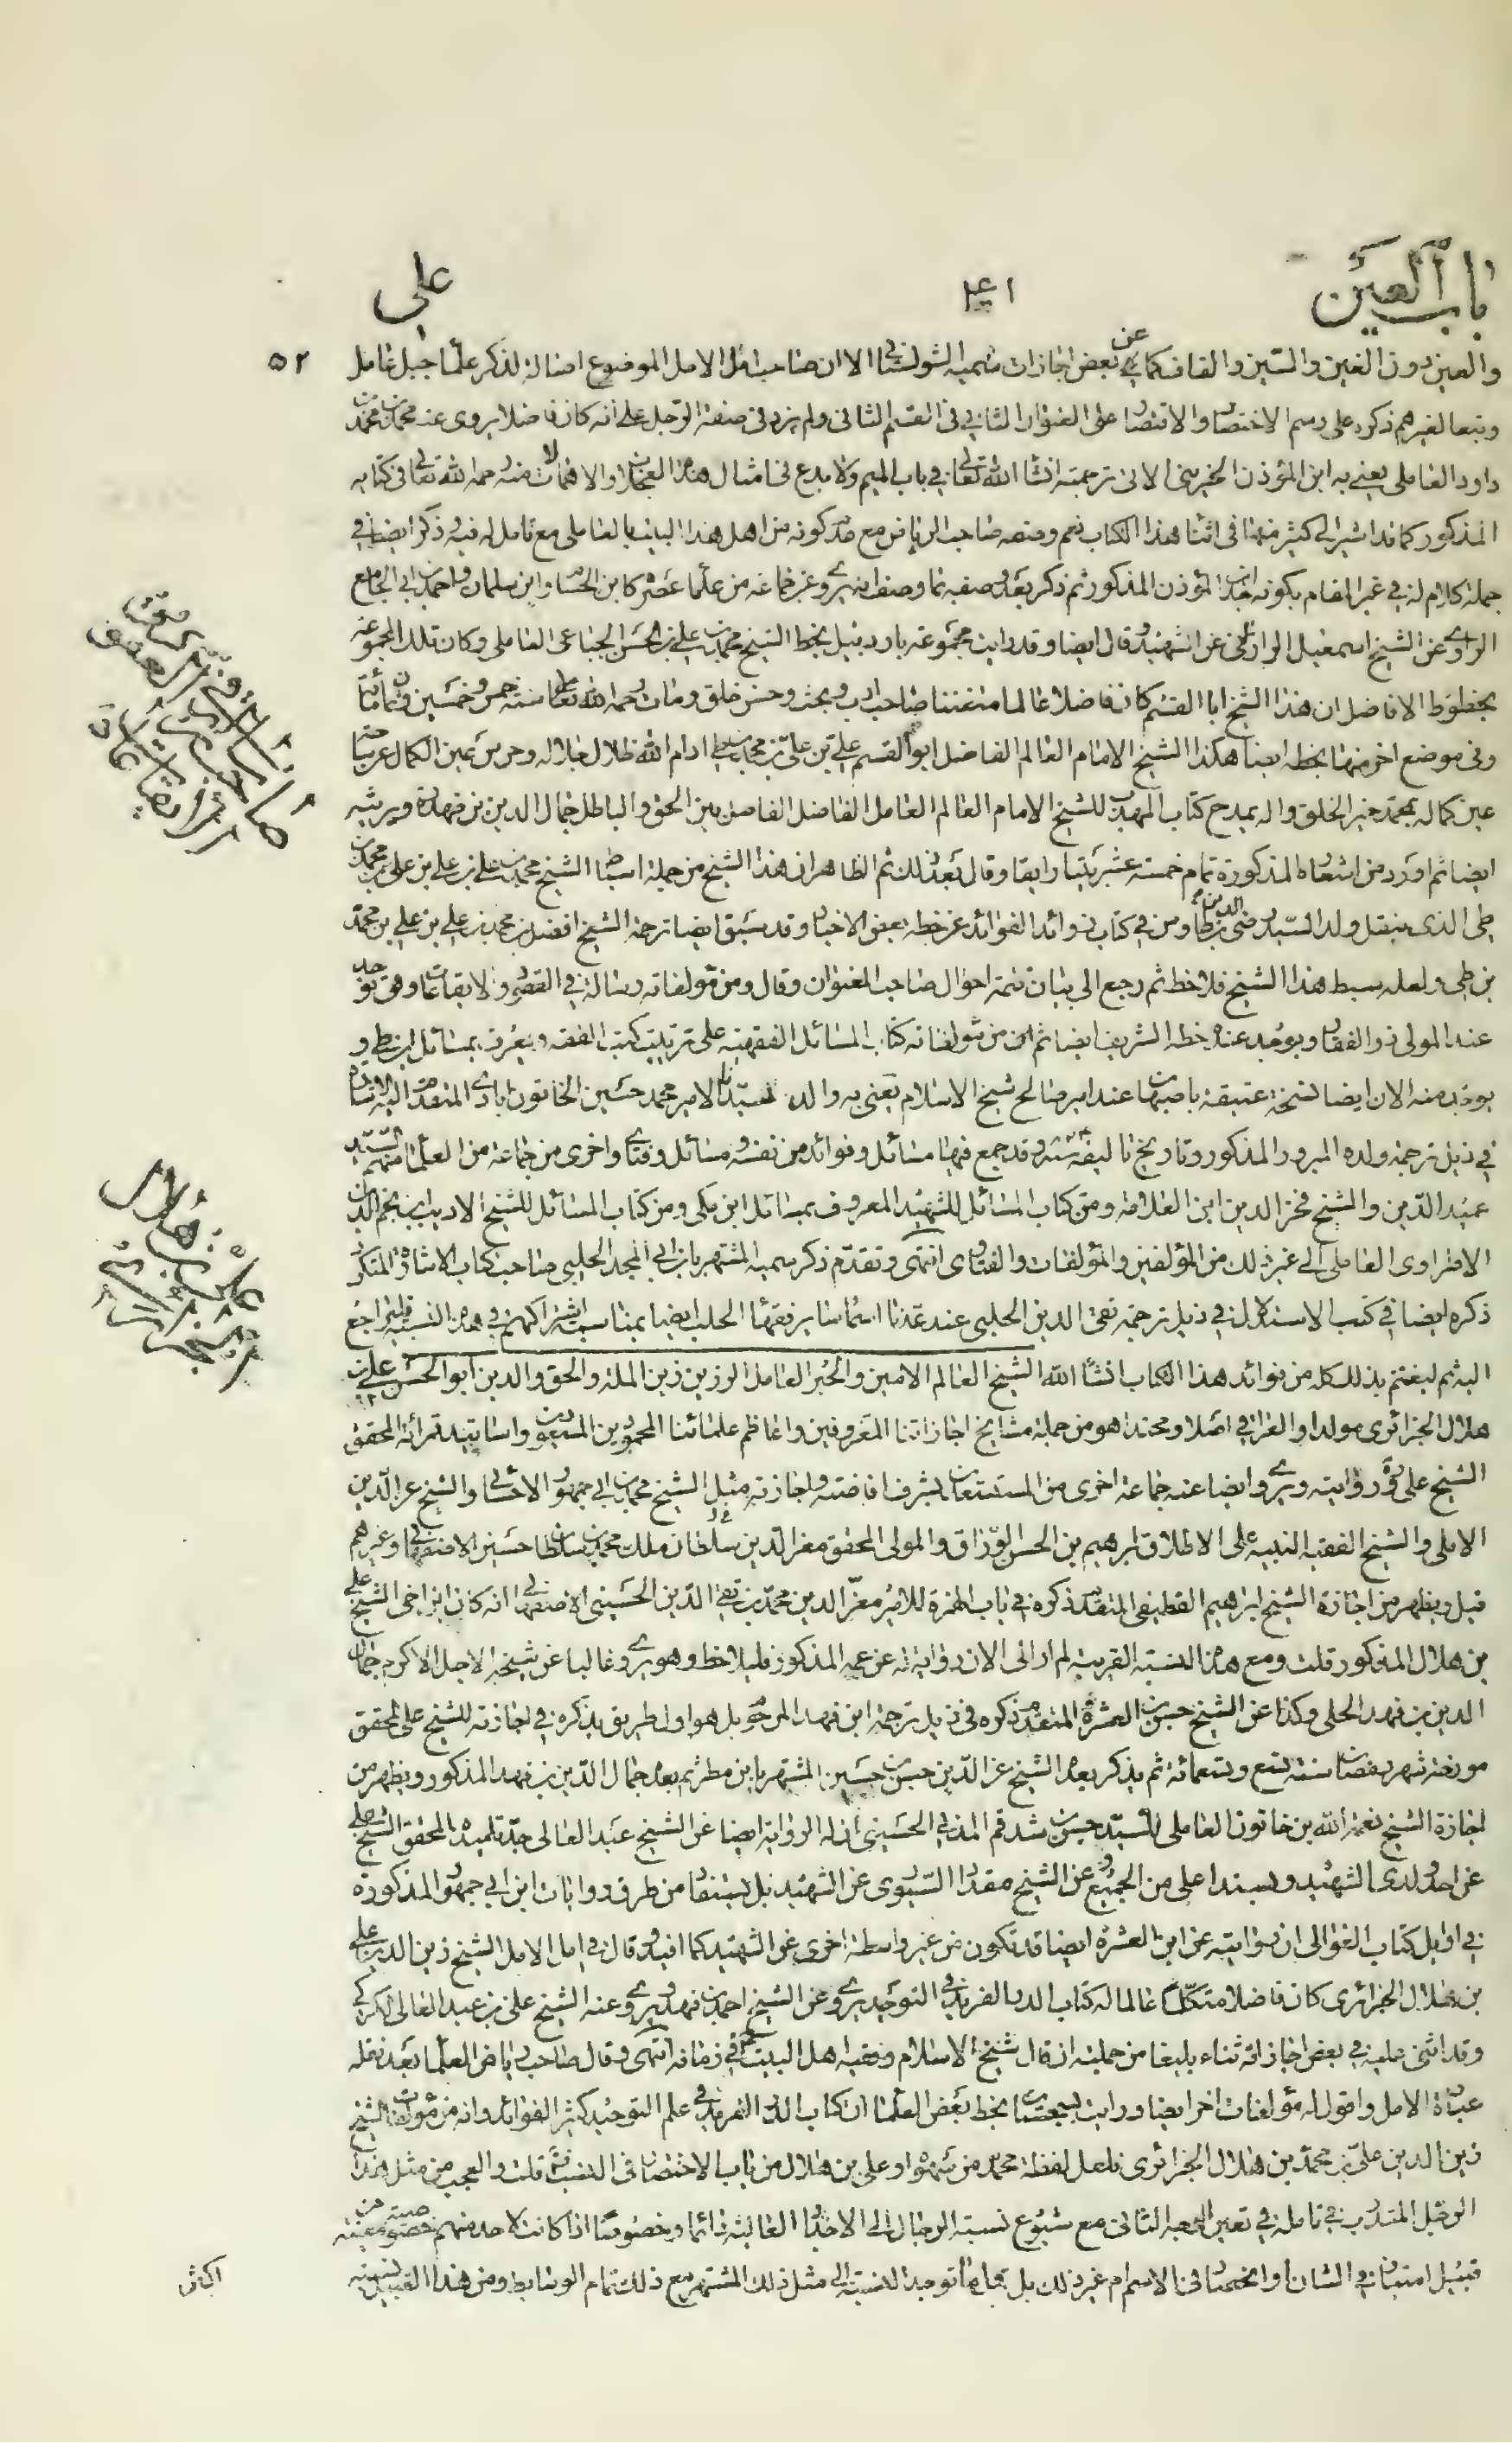 باب العين
٤٠١
على
٥٢
والعين دون الغين والسين والقاف كما في عن بعض اجازات سميه الشولستاني الا ان صاحب امل الامل الموضوع اصالة لذكر علماء جبل عامل
وتبعا لغيرهم ذكره على رسم الاختصار والاقتصار على العنوان الثاني في القسم الثانى ولم يزد في صفة الرجل على انه كان فاضلا يروى عنه محمد بن محمد بن
داود العاملى يعنى به ابن المؤذن الجزينى الاتى ترجمته انشاء الله تعالى في باب الميم ولا بدع في امثال هذه العجلات والاهمالات منه رحمه الله تعالى في كتابه
المذكور كما قد اشير الى كثير منها في اثناء هذا الكتاب نعم وصفه صاحب الرياض مع كونه من اهل هذا البيت بالعاملى مع تامل له فيه وذكر ايضا في
جملة كلام له في غير المقام بكونه ابن المؤذن المذكور ثم ذكر بعد وصفه بما وصف انه يروى عن جماعة من علماء عصره كابن الحسام وابن سليمان واحمد بن ابى الجامع
الراوى عن الشيخ اسمعيل الرازى عن الشهيد وقال ايضا وقد رايت مجموعة باردبيل بخط الشيخ محمد بن على بن الحسن الجباعى العاملى وكان تلك المجموعة
بخطوط الافاضل ان هذا الشيخ ابا القسم كان فاضلا عالما متفننا صاحب ادب وبحث وحسن خلق ومات رحمه الله تعالى سنة خمس وخمسين وثمانمائة
وفى موضع اخر منها بخطه ايضا هكذا الشيخ الامام العالم الفاضل ابو القسم على بن على بن محمد بن طى ادام الله ظلال جلاله وحرس عين الكمال عن ساحة
عين كماله بمحمد خير الخلق واله يمدح كتاب المهذب للشيخ الامام العالم العامل الفاضل الفاصل بين الحق والباطل جمال الدين بن فهد ويرثيه
ايضا ثم اورد من اشعاره المذكورة تمام خمسة عشر بيتا رايقا وقال بعد ذلك ثم الظاهر ان هذا الشيخ من جملة اسباط الشيخ محمد بن على بن على بن محمد بن
طى الذى ينقل ولد السيد رضى الدين بن طاوس في كتاب زوائد الفوائد عن خطه بعض الاخبار وقد سبق ايضا ترجمة الشيخ افضل بن محمد بن على بن على بن محمد
بن طى ولعله سبط هذا الشيخ فلاحظ ثم رجع الى بيان تتمة احوال صاحب العنوان وقال ومن مؤلفاته رسالة في العقود والايقاعات وقد توجد
عند المولى ذو الفقار ويوجد عنده خطه الشريف ايضا ثم ان من مؤلفاته كتاب المسائل الفقهيه على ترتيب كتب الفقه ويعرف بمسائل ابن طى و
يوجد منه الان ايضا نسخة عتيقة باصبهان عند امير صالح شيخ الاسلام يعنى به والد سيدنا الامير محمد حسين الخاتون ابادى المتقدم اليه الاشارة
في ذيل ترجمة ولده المبرور المذكور وتاريخ تاليفه سنة وقد جمع فيها مسائل وفوائد من نفسه ومسائل وفتاوى اخرى من جماعة من العلماء منهم السيد
عميد الدين والشيخ فخر الدين ابن العلامة ومن كتاب المسائل للشهيد المعروف بمسائل ابن مكى ومن كتاب المسائل للشيخ الاديب ابن نجم الدين
الاطراوى العاملى الى غير ذلك من المؤلفين والمؤلفات والفتاوى انتهى وتقدم ذكر سميه المشتهر بابن ابى المجد الحلبى صاحب كتاب الاشارة المتكرر
ذكره ايضا في كتب الاستدلال في ذيل ترجمة تقى الدين الحلبى عند عدنا اسماء ساير فقهاء الحلب ايضا بمناسبة اشتراكهم في هذه النسبة فليراجع
اليه ثم ليغتنم بذلك كله من فوائد هذا الكتاب انشاء الله الشيخ العالم الامين والحبر العامل الرزين زين الملة والحق والدين ابو الحسن على بن
هلال الجزائرى مولدا والعراقى اصلا ومحتدا هو من جملة مشايخ اجازاتنا المعروفين واعاظم علمائنا المحمودين المسعودين واساتيد قرائة المحقق
الشيخ على وروايته ويروى ايضا عنه جماعة اخرى من المستسعدين بشرف افاضته واجازته مثل الشيخ محمد بن ابى جمهور الاحسائى والشيخ عز الدين
الاملى والشيخ الفقيه النبيه على الاطلاق ابرهيم بن الحسن الوراق والمولى المحقق معز الدين سلطان ملك محمد بن سلطان حسين الاصفهانى وغيرهم
قيل ويظهر من اجازة الشيخ ابرهيم القطيفى المتقدم ذكره في باب الهمزة للامير معز الدين محمد بن تقى الدين الحسينى الاصفهانى انه كان ابن اخى الشيخ على
بن هلال المذكور قلت ومع هذه النسبة القريبة لم ار الى الان رواية له عن عمه المذكور فليلاحظ وهو يروى غالبا عن شيخه الاجل الاكرم جمال
الدين بن فهد الحلى وكذا عن الشيخ حسن بن العشرة المتقدم ذكره في ذيل ترجمة ابن فهد المرحوم بل هو اول طريق يذكره في اجازته للشيخ على المحقق
مورخة شهر رمضان سنة تسع وتسعمائة ثم يذكر بعده الشيخ عز الدين حسن بن حسين المشتهر بابن مطر ثم بعده جمال الدين بن فهد المذكور ويظهر من
اجازة الشيخ نعمة الله بن خاتون العاملى للسيد حسن بن شدقم المدنى الحسينى ان له الرواية ايضا عن الشيخ عبد العالى جد تلميذه المحقق الشيخ على
عن احد ولدى الشهيد وبسند اعلى من الجميع عن الشيخ مقداد السيورى عن الشهيد بل يستفاد من طرق روايات ابن ابى جمهور المذكورة
في اوايل كتاب الغوالى ان روايته عن ابن العشرة ايضا قد تكون من غير واسطة اخرى عن الشهيد كما افيد وقال في امل الامل الشيخ زين الدين على
بن هلال الجزائرى كان فاضلا متكلما عالما له كتاب الدر الفريد في التوحيد يروى عن الشيخ احمد بن فهد ويروى عنه الشيخ على بن عبد العالى الكركى
وقد اثنى عليه في بعض اجازاته ثناء بليغا من جملته انه قال شيخ الاسلام وفقيه اهل البيت في زمانه انتهى وقال صاحب رياض العلماء بعد نقله
عبارة الامل واقول له مؤلفات اخر ايضا ورايت بخط بعض العلماء ان كتاب الدر الفريد في علم التوحيد كثير الفوائد وانه من مؤلفات الشيخ
زين الدين على بن محمد بن هلال الجزائرى فلعل لفظة محمد من سهوه او على بن هلال من باب الاختصار في النسب قلت والعجب من مثل هذا
الرجل المتدرب في تامله في تعيين الوجه الثانى مع شيوع نسبة الرجال الى الاجداد العالية دائما وخصوصا اذا كانت لاحد منهم خصوصية من معينه
قبيل امتياز في الشان او انحصار في الاسم ام غير ذلك بل توجد النسبة الى مثل ذلك المشتهر مع ذلك تمام الوسايط ومن هذا القبيل نسبته
اكثر
على بن هلال
الجزائرى